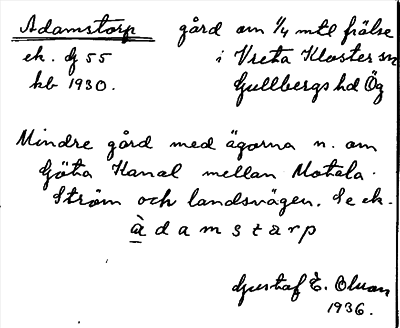 Adamstorp gård om 1/4 mtl frälse
ek. bl 55 i Vreta Kloster sn
kb 1930. Gullbergs hd Ög
Mindre gård med ägorna n. om
Göta Kanal mellan Motala
Ström och landsvägen. Se ek.
àdamstarp
Gustaf E. Olson
1936.